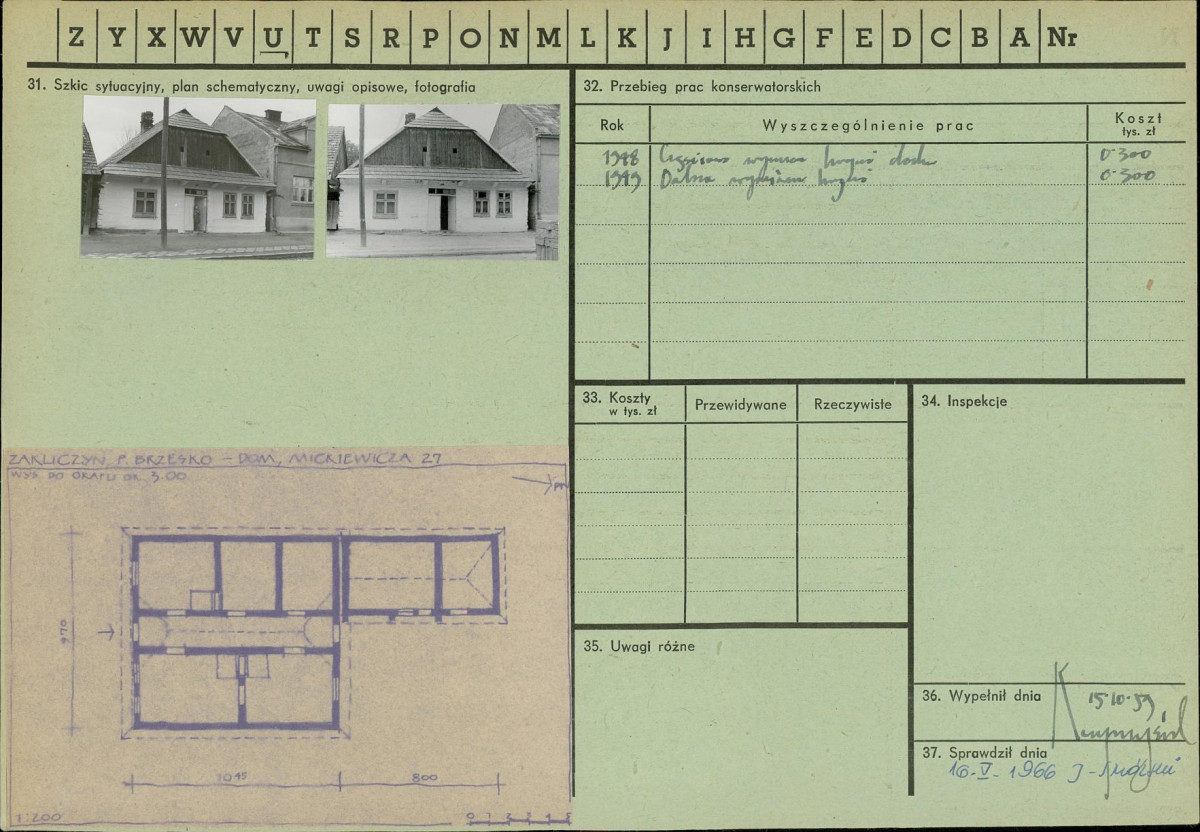 Z Y X W V U T S R P O N M L K J I H G F E D C B A Nr
31. Szkic sytuacyjny, plan schematyczny, uwagi opisowe, fotografia
ZAKLICZYN, P. BRZESKO – DOM, MICKIEWICZA 27
WYS. DO OKAPU OK. 3.00
970
1045
800
1:200
32. Przebieg prac konserwatorskich
Rok
Wyszczególnienie prac
Koszt
tys. zł
1948 dachu 0·300
1949 0·300
33. Koszty
w tys. zł
Przewidywane
Rzeczywiste
34. Inspekcje
35. Uwagi różne
36. Wypełnił dnia 15·10·59
37. Sprawdził dnia
16·V·1966